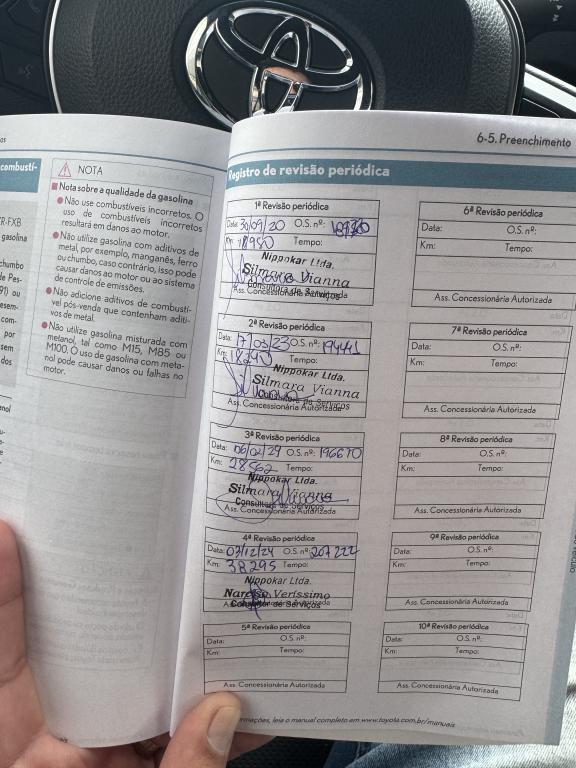 combustí-
R-FXB
gasolina
chumbo
de Pes-
91) ou
esem-
com-
por
sem
dos
NOTA
Nota sobre a qualidade da gasolina
Não use combustíveis incorretos. O
uso de combustíveis incorretos
resultará em danos ao motor.
Não utilize gasolina com aditivos de
metal, por exemplo, manganês, ferro
ou chumbo, caso contrário, isso pode
causar danos ao motor ou ao sistema
de controle de emissões.
Não adicione aditivos de combustí-
vel pós-venda que contenham aditi-
vos de metal.
Não utilize gasolina misturada com
metanol, tal como M15, M85 ou
M100. O uso de gasolina com meta-
nol pode causar danos ou falhas no
motor.
6-5. Preenchimento
Registro de revisão periódica
1ª Revisão periódica
Data: 30/09/20 O.S. nº:
Km: Tempo:
Nippokar Ltda.
Silmara Vianna
Consultora de Serviços
Ass. Concessionária Autorizada
2ª Revisão periódica
Data: 17/03/23 O.S. nº: 194441
Km: 18240 Tempo:
Nippokar Ltda.
Silmara Vianna
Consultora de Serviços
Ass. Concessionária Autorizada
3ª Revisão periódica
Data: 06/02/24 O.S. nº: 196670
Km: 28562 Tempo:
Nippokar Ltda.
Silmara Vianna
Consultora de Serviços
Ass. Concessionária Autorizada
4ª Revisão periódica
Data: 03/12/24 O.S. nº: 207222
Km: 38295 Tempo:
Nippokar Ltda.
Narciso Veríssimo
Consultor de Serviços
5ª Revisão periódica
Data: O.S. nº:
Km: Tempo:
Ass. Concessionária Autorizada
6ª Revisão periódica
Data: O.S. nº:
Km: Tempo:
Ass. Concessionária Autorizada
7ª Revisão periódica
Data: O.S. nº:
Km: Tempo:
Ass. Concessionária Autorizada
8ª Revisão periódica
Data: O.S. nº:
Km: Tempo:
Ass. Concessionária Autorizada
9ª Revisão periódica
Data: O.S. nº:
Km: Tempo:
Ass. Concessionária Autorizada
10ª Revisão periódica
Data: O.S. nº:
Km: Tempo:
Ass. Concessionária Autorizada
mações, leia o manual completo em www.toyota.com.br/manuais